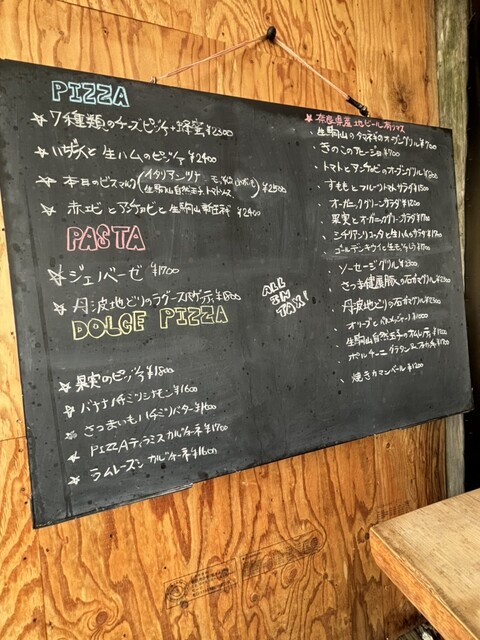 PIZZA
☆ 7種類のチーズピッツァ+蜂蜜 ¥2500
☆ いちじくと生ハムのピッツァ ¥2400
☆ 本日のビスマルク (イタリアンツナ
生駒山自然玉子、トマトソース ¥2500
☆ 赤エビとアンチョビと生駒山 ¥2400
PASTA
☆ ジェノベーゼ ¥1700
☆ 丹波地どりのラグースパゲッティ ¥1800
DOLCE PIZZA
☆ 果実のピッツァ ¥1800
☆ バナナハチミツシナモン ¥1600
☆ さつまいもハチミツバター ¥1600
☆ PIZZAティラミスカルツォーネ ¥1700
☆ ラムレーズンカルツォーネ ¥1600
ALL
IN
TAX!
★ 奈良県産地ビール有ります
・生駒山のタマネギのオーブングリル ¥700
・きのこのアヒージョ ¥900
・トマトとアンチョビのオーブングリル ¥800
・すももとフルーツトマトサラダ ¥1500
・オーガニックグリーンサラダ ¥1200
・果実とオーガニックグリーンサラダ ¥1700
・シチリアンリコッタと生ハムのサラダ ¥1700
・ゴールデンキウイと ¥1700
・ソーセージグリル ¥1200
・さつま健康豚の石ガマグリル
・丹波地どりの石ガマグリル
・オリーブと ¥1000
・生駒山自然玉子のオムレツ
・ポルチーニグラタン
・焼きカマンベール ¥1200